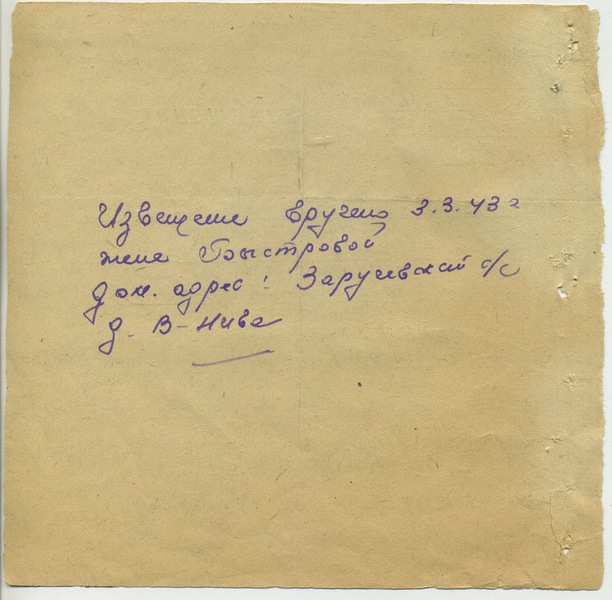 Извещение вручено 3.3.43 г
жене Быстровой
дом. адрес: Заручевский с/с
д. В-Нива